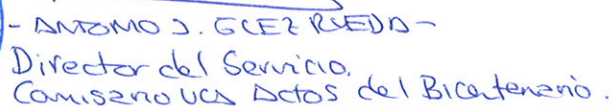 - ANTONIO J. GLEZ RUEDA -
Director del Servicio.
Comisario UCA Actos del Bicentenario.